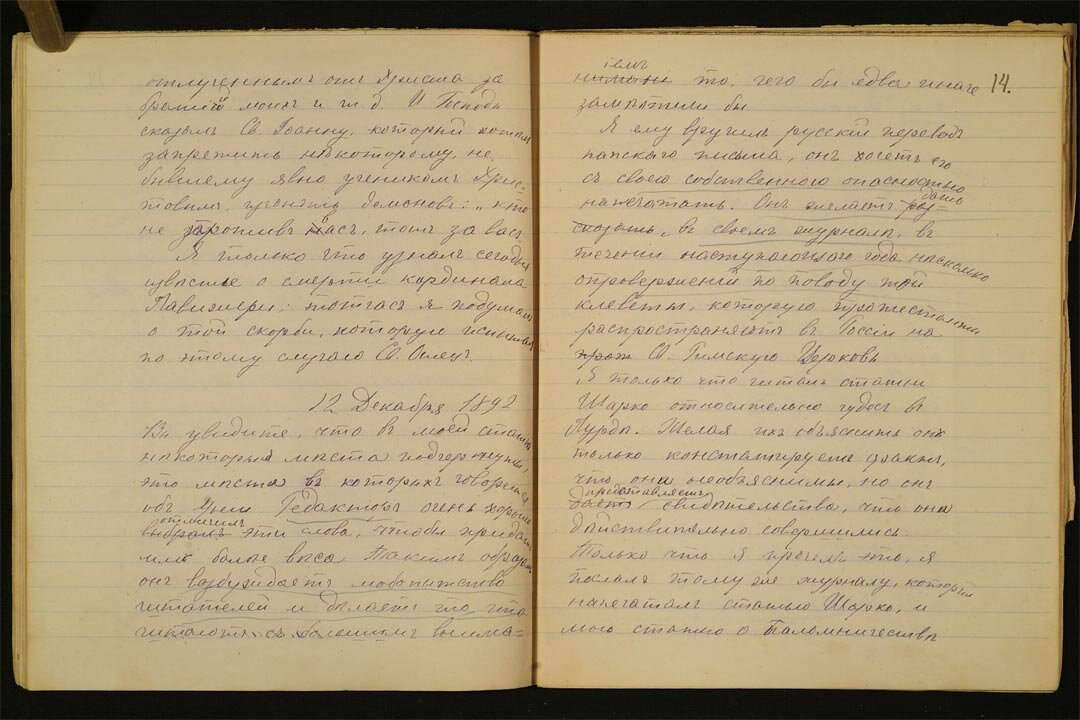 отлученнымъ отъ Христа за
братій моихъ и т. д. И Господь
сказалъ Св. Іоанну, который хотѣлъ
запретить нѣкоторому, не
бывшему явно ученикомъ Хрис-
товымъ, изгонять демоновъ: „кто
не противъ васъ, тотъ за васъ.
Я только что узналъ сегодня
извѣстіе о смерти кардинала
Лавижери; тотчасъ я подумалъ
о той скорби, которую испыталъ
по этому случаю Св. Отецъ.
12 Декабря 1892
Вы увидите, что въ моей статьѣ
нѣкоторыя мѣста подчеркнуты,
это мѣста въ которыхъ говорится
объ Уніи. Редакторъ очень хорошо
отмѣтилъ
выбралъ эти слова, чтобы придать
имъ болѣе вѣса. Такимъ образомъ
онъ возбуждаетъ любопытство
читателей и дѣлаетъ то, что
читаютъ съ большимъ внима-
іемъ
то, чего бы едва иначе
14.
замѣтили бы.
Я ему вручилъ русскій переводъ
папскаго письма, онъ хочетъ его
съ своею собственною опасностью
напечатать. Онъ желаетъ
дать
въ своемъ журналѣ, въ
теченіи наступающаго года нѣсколько
опроверженій по поводу той
клеветы, которую протестанты
распространяютъ въ Россіи на
Св. Римскую Церковь
Я только что читалъ статьи
Шарко относительно чудесъ въ
Лурдѣ. Желая ихъ объяснить онъ
только констатируетъ фактъ,
что они необъяснимы, но онъ
представляетъ
даетъ свидѣтельства, что они
дѣйствительно совершились.
Только что я прочелъ это, я
послалъ тому же журналу, который
напечаталъ статью Шарко, и
мою статью о Паломничествѣ